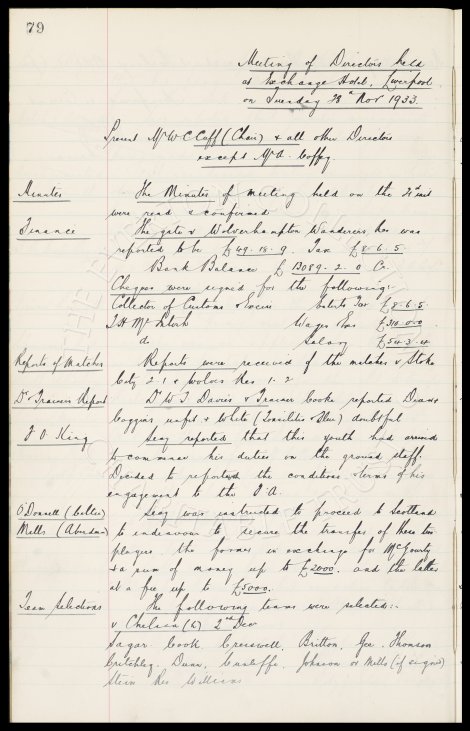 79
Meeting of Directors held
at Exchange Hotel, Liverpool
on Tuesday 28th Nov 1933.
Present Mr W C Cuff (Chair) & all other Directors
except Mr A. Coffey
Minutes The Minutes of meeting held on the 21st inst
were read & confirmed
Finance The gate v Wolverhampton Wanderers Res was
reported to be £49. 18. 9 Tax £8. 6. 5
Bank Balance £13089. 2. 0 Cr.
Cheques were signed for the following:
Collector of Customs & Excise Entets Tax £8. 6. 5
T. H. McIntosh Wages Exes £310. 0. 0
do Salary £54. 3. 4
Reports of Matches Reports were received of the matches v Stoke
City 2-1 & Wolves Res 1-2
Dr & Trainers Report Dr W J Davies & Trainer Cooke reported Deans
Coggins unfit & White (Tonsilitis & Flu) doubtful
J O King Secy reported that this youth had arrived
to commence his duties on the ground staff.
Decided to report the conditions & terms of his
engagement to the F.A.
O'Donnell (Celtic) Secy was instructed to proceed to Scotland
Mills (Aberdeen) to endeavour to secure the transfer of these two
players the former in exchange for McGourty
& a sum of money up to £2000. and the latter
at a fee up to £5000.
Team Selections The following teams were selected:-
v Chelsea (G) 2nd Dec
Sagar Cook, Cresswell, Britton, Gee, Thomson
Critchley, Dunn, Cunliffe, Johnson or Mills (if signed)
Stein Res Williams